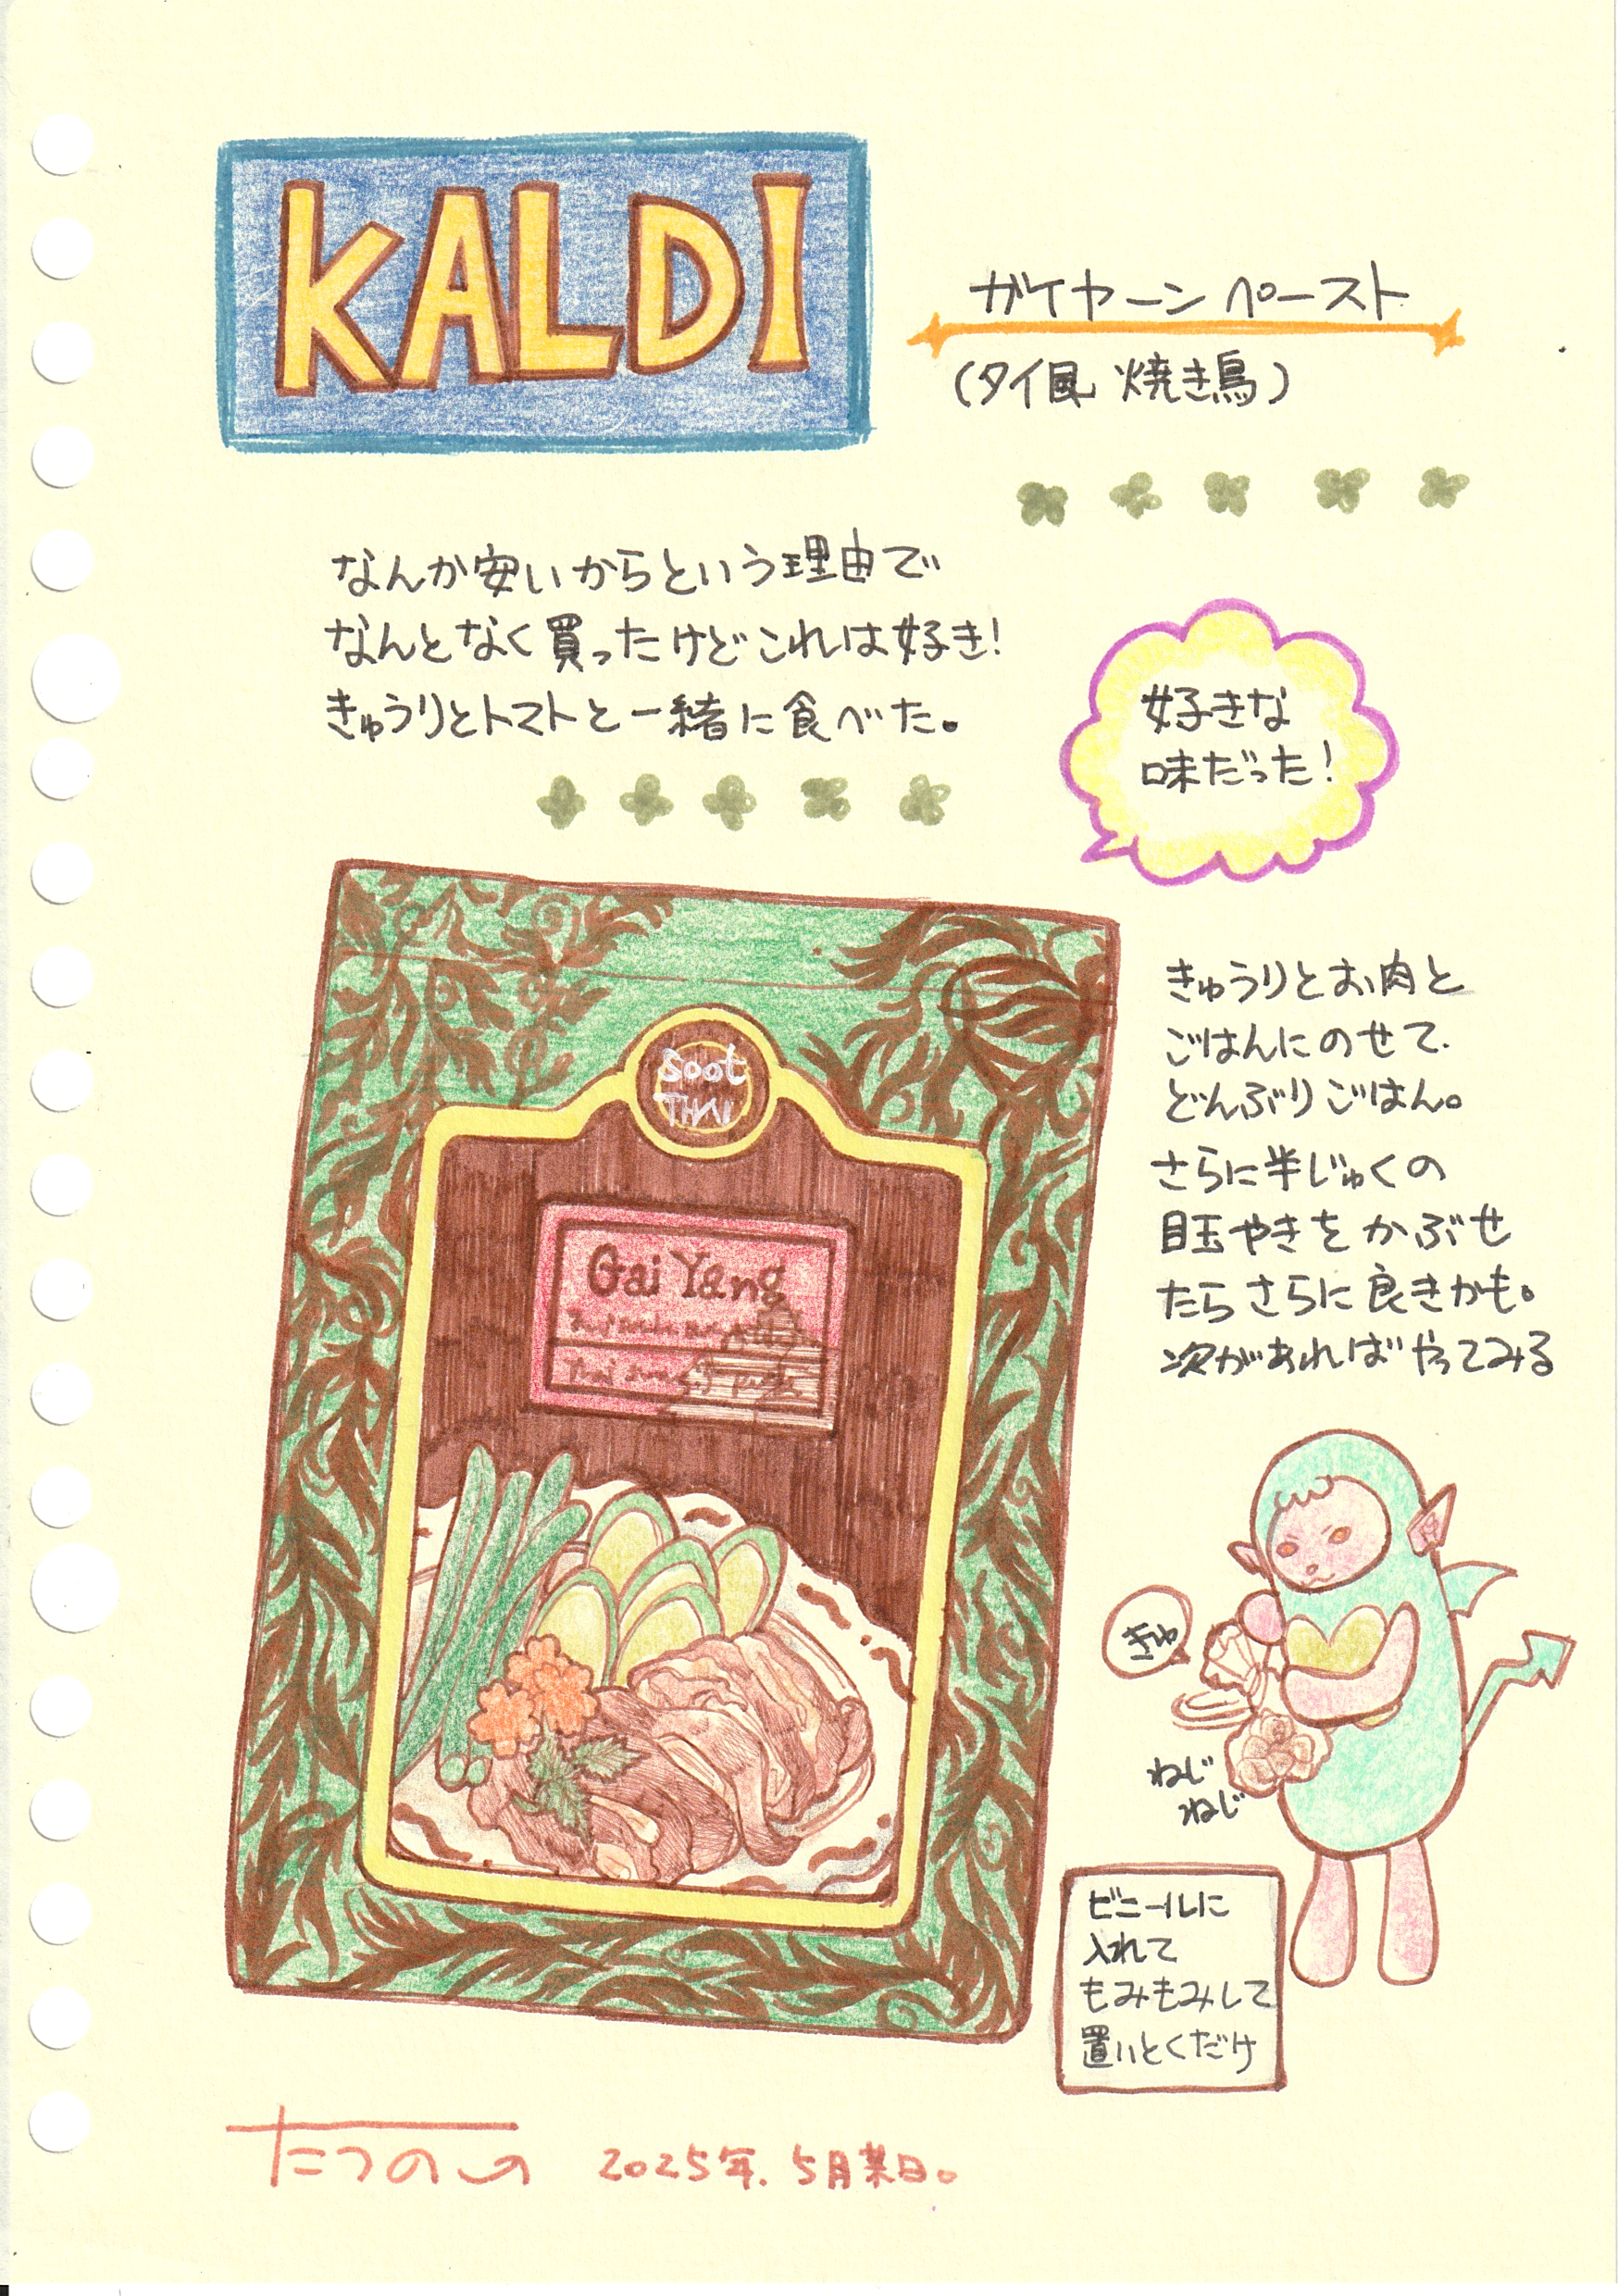 KALDI
ガイヤーンペースト
(タイ風 焼き鳥)
なんか安いからという理由で
なんとなく買ったけどこれは好き!
きゅうりとトマトと一緒に食べた。
好きな
味だった!
きゅうりとお肉と
ごはんにのせて、
どんぶりごはん。
さらに半じゅくの
目玉やきをかぶせ
たらさらに良きかも。
次があればやってみる
Soot
THAI
Gai Yang
Thai
きゅ
ねじ
ねじ
ビニールに
入れて
もみもみして
置いとくだけ
たつのこ
2025年.5月某日。